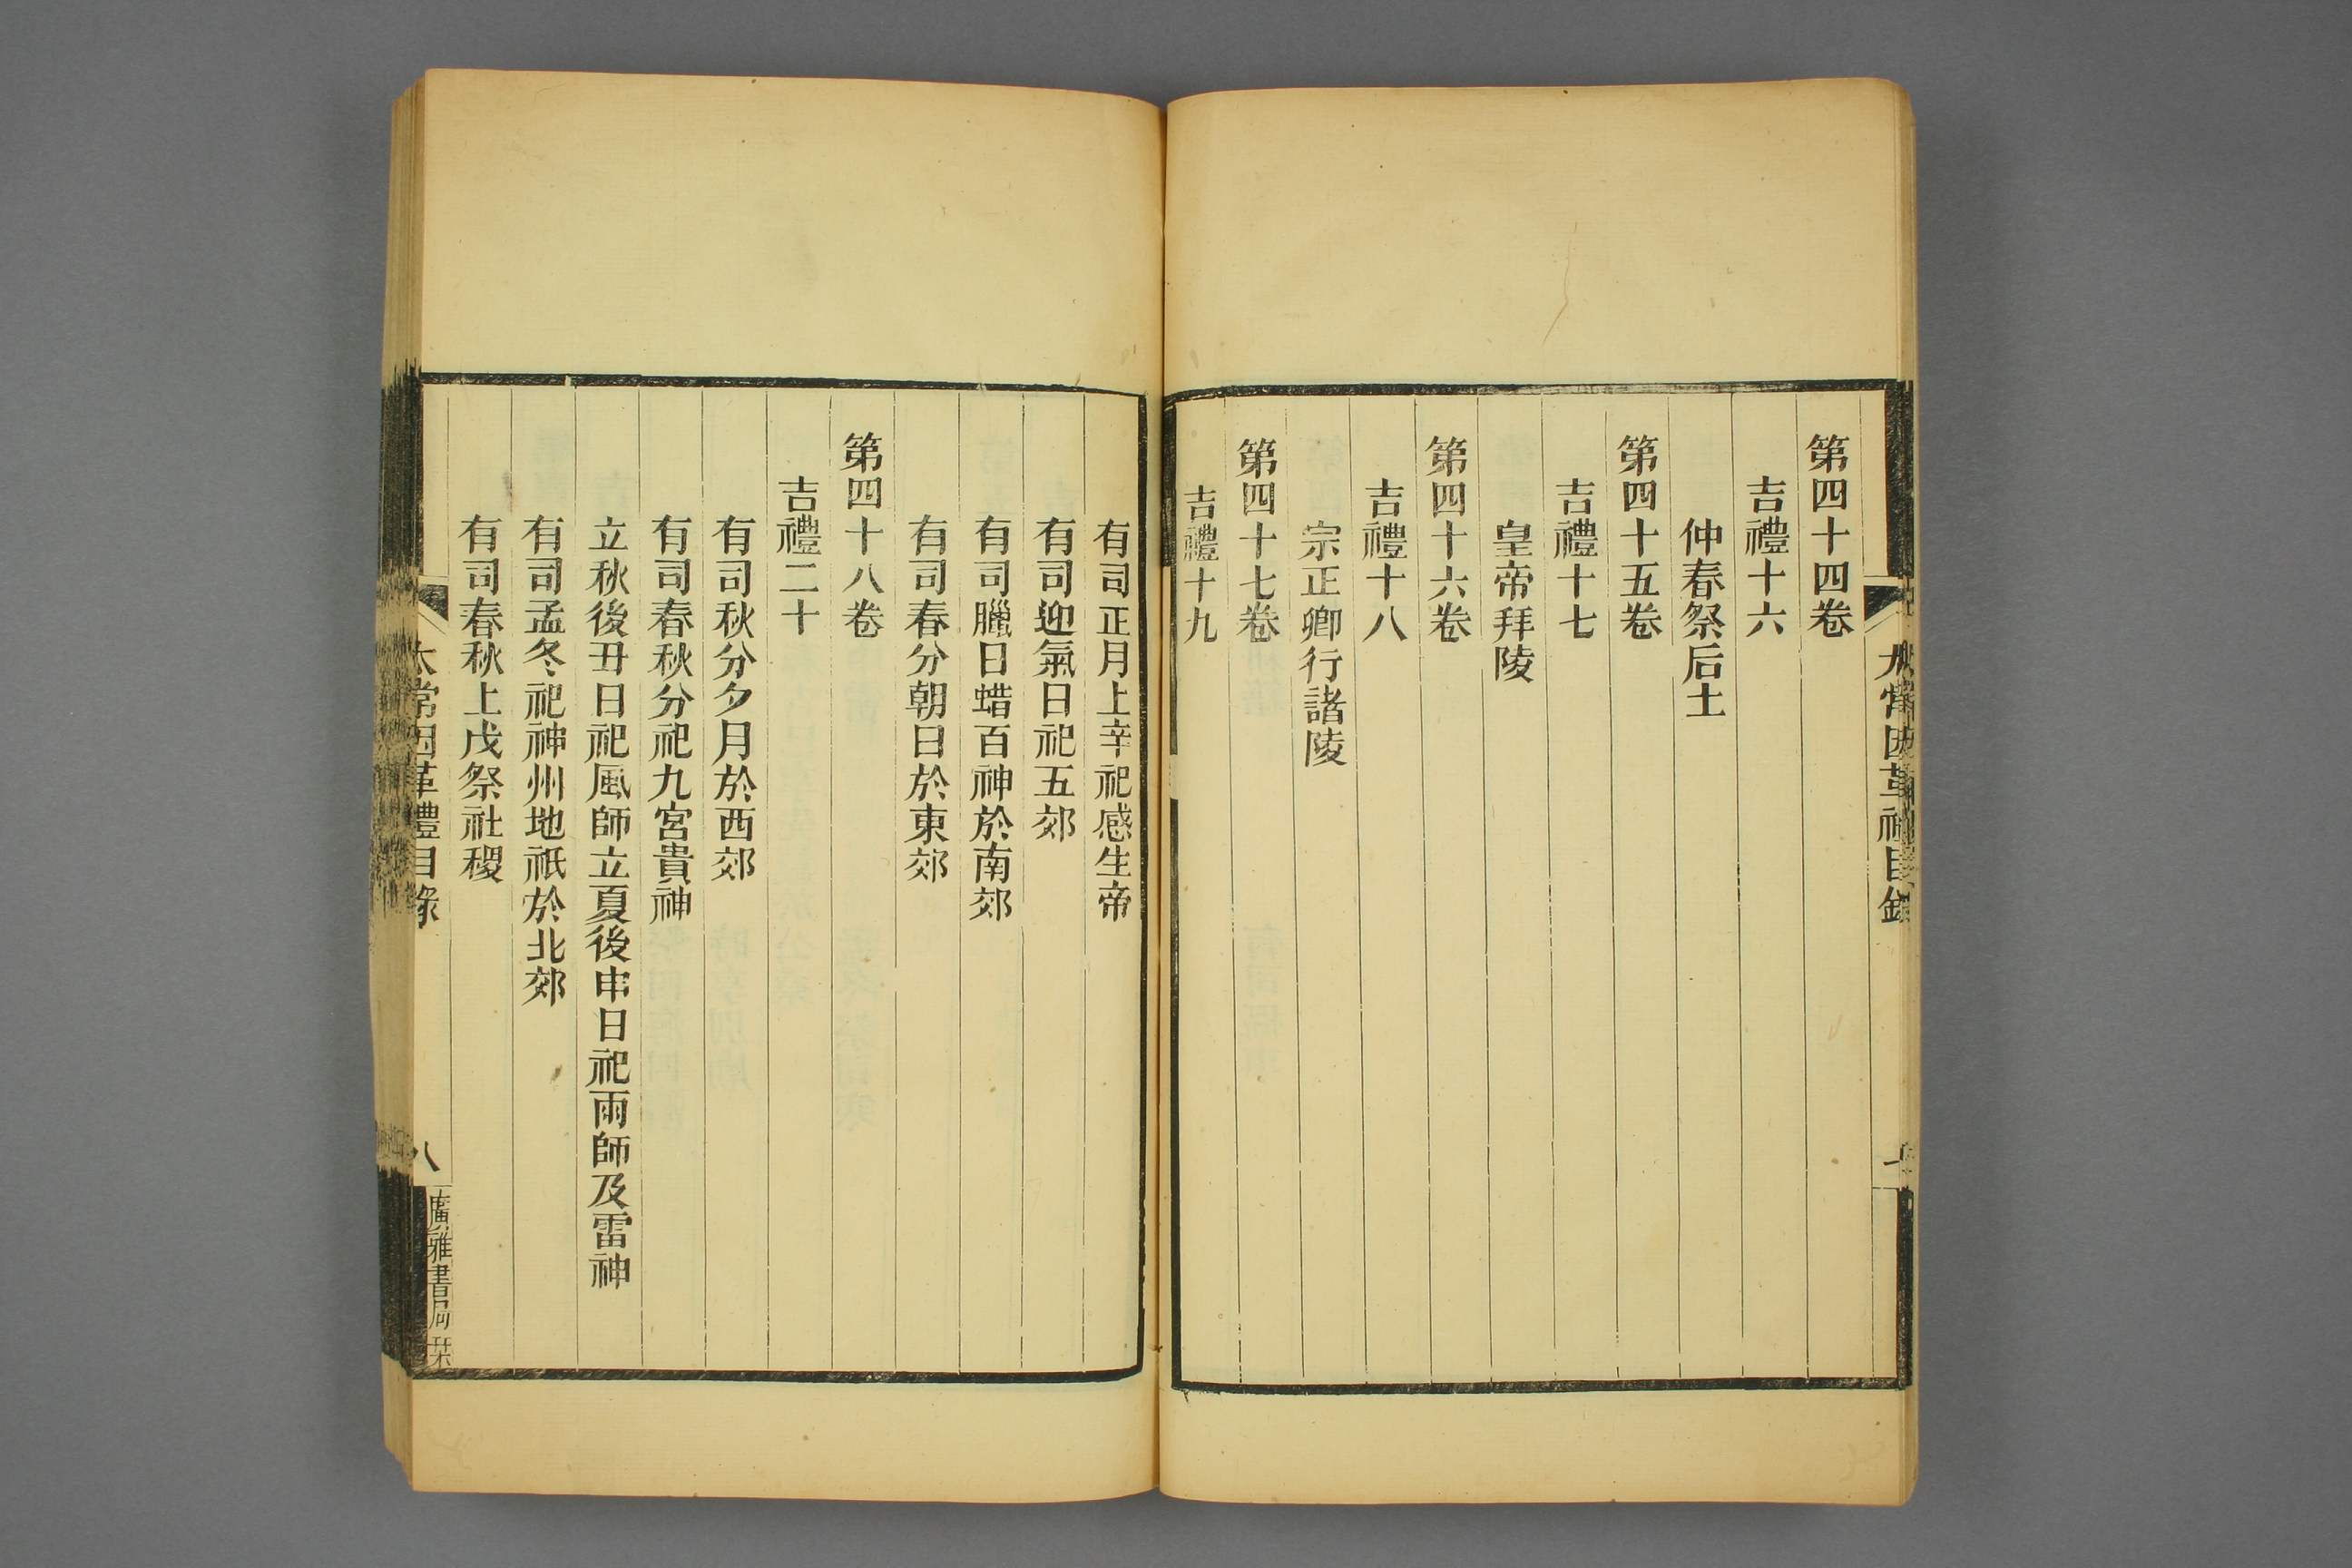 第四十四卷
吉禮十六
仲春祭后土
第四十五卷
吉禮十七
皇帝拜陵
第四十六卷
吉禮十八
宗正卿行諸陵
第四十七卷
吉禮十九
有司正月上辛祀感生帝
有司迎氣日祀五郊
有司臘日蜡百神於南郊
有司春分朝日於東郊
第四十八卷
吉禮二十
有司秋分夕月於西郊
有司春秋分祀九宮貴神
立秋後丑日祀風師立夏後申日祀雨師及雷神
有司孟冬祀神州地祇於北郊
有司春秋上戊祭社稷
太常因革禮目錄
八
廣雅書局栞